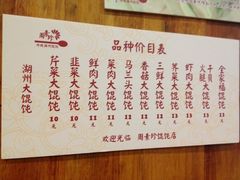 周素珍
品种价目表
湖州大馄饨
芹菜大馄饨 10元
韭菜大馄饨 10元
鲜肉大馄饨 11元
菜肉大馄饨 11元
马兰头大馄饨 12元
香菇大馄饨 12元
三鲜大馄饨 12元
荠菜大馄饨 12元
虾肉大馄饨 13元
干贝火腿大馄饨 13元
全家福馄饨 13元
欢迎光临 周素珍馄饨店